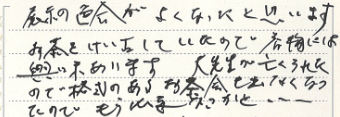 展示の色会がよくなったと思います
お茶をけい古していたので 着物には
思い未あります 大先生が亡くなられた
ので格式のあるお茶会も出なくなっ
たので もう必要なっかと、ーー